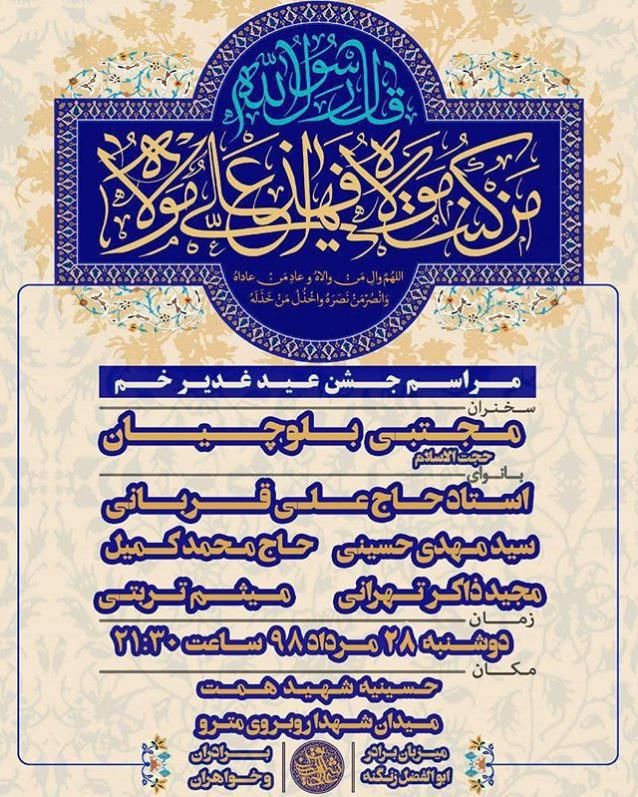 قال رسول الله
من کنت مولاه فهذا علی مولاه
اللهم وال من والاه و عاد من عاداه
وانصر من نصره واخذل من خذله
مراسم جشن عید غدیر خم
سخنران
مجتبی بلوچیان
حجت الاسلام
بانوای
استاد حاج علی قربانی
سید مهدی حسینی حاج محمد کمیل
مجید ذاکر تهرانی میثم تربتی
زمان
دوشنبه ۲۸ مرداد ۹۸ ساعت ۲۱:۳۰
مکان
حسینیه شهید همت
میدان شهدا روبروی مترو
میزبان برادر
ابوالفضل زنگنه
برادران
و خواهران